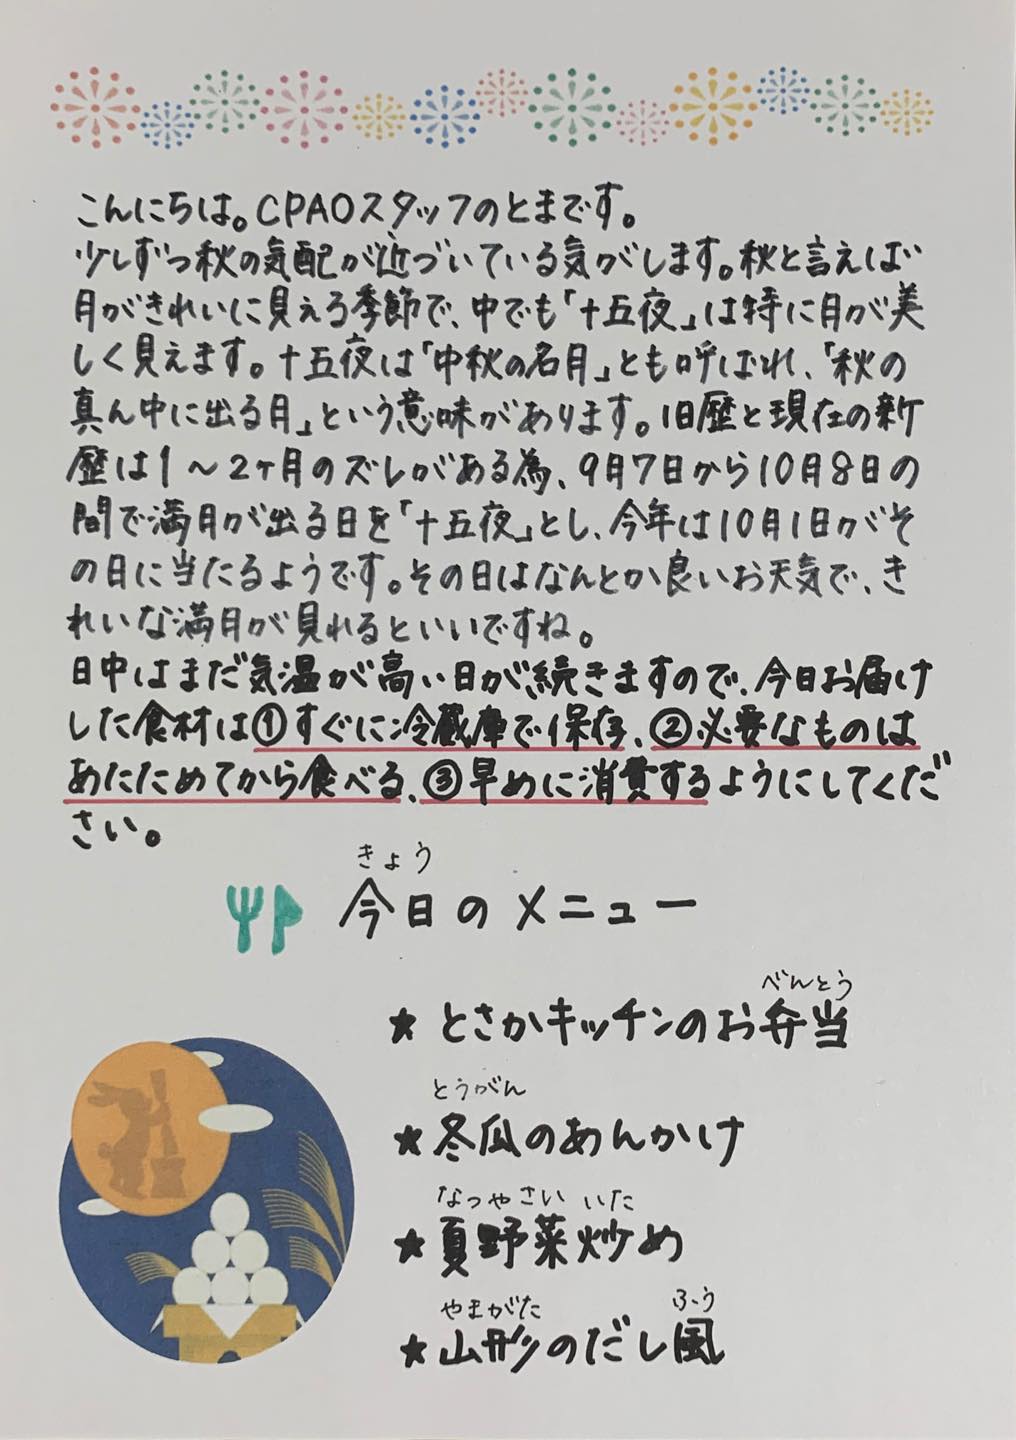 こんにちは。CPAOスタッフのとまです。
少しずつ秋の気配が近づいている気がします。秋と言えば
月がきれいに見える季節で、中でも「十五夜」は特に月が美
しく見えます。十五夜は「中秋の名月」とも呼ばれ、「秋の
真ん中に出る月」という意味があります。旧歴と現在の新
歴は1～2ヶ月のズレがある為、9月7日から10月8日の
間で満月が出る日を「十五夜」とし、今年は10月1日がそ
の日に当たるようです。その日はなんとか良いお天気で、き
れいな満月が見れるといいですね。
日中はまだ気温が高い日が続きますので、今日お届け
した食材は①すぐに冷蔵庫で保存、②必要なものは
あたためてから食べる、③早めに消費するようにしてくだ
さい。
きょう
今日のメニュー
べんとう
★とさかキッチンのお弁当
とうがん
★冬瓜のあんかけ
なつやさい いた
★夏野菜炒め
やまがた ふう
★山形のだし風